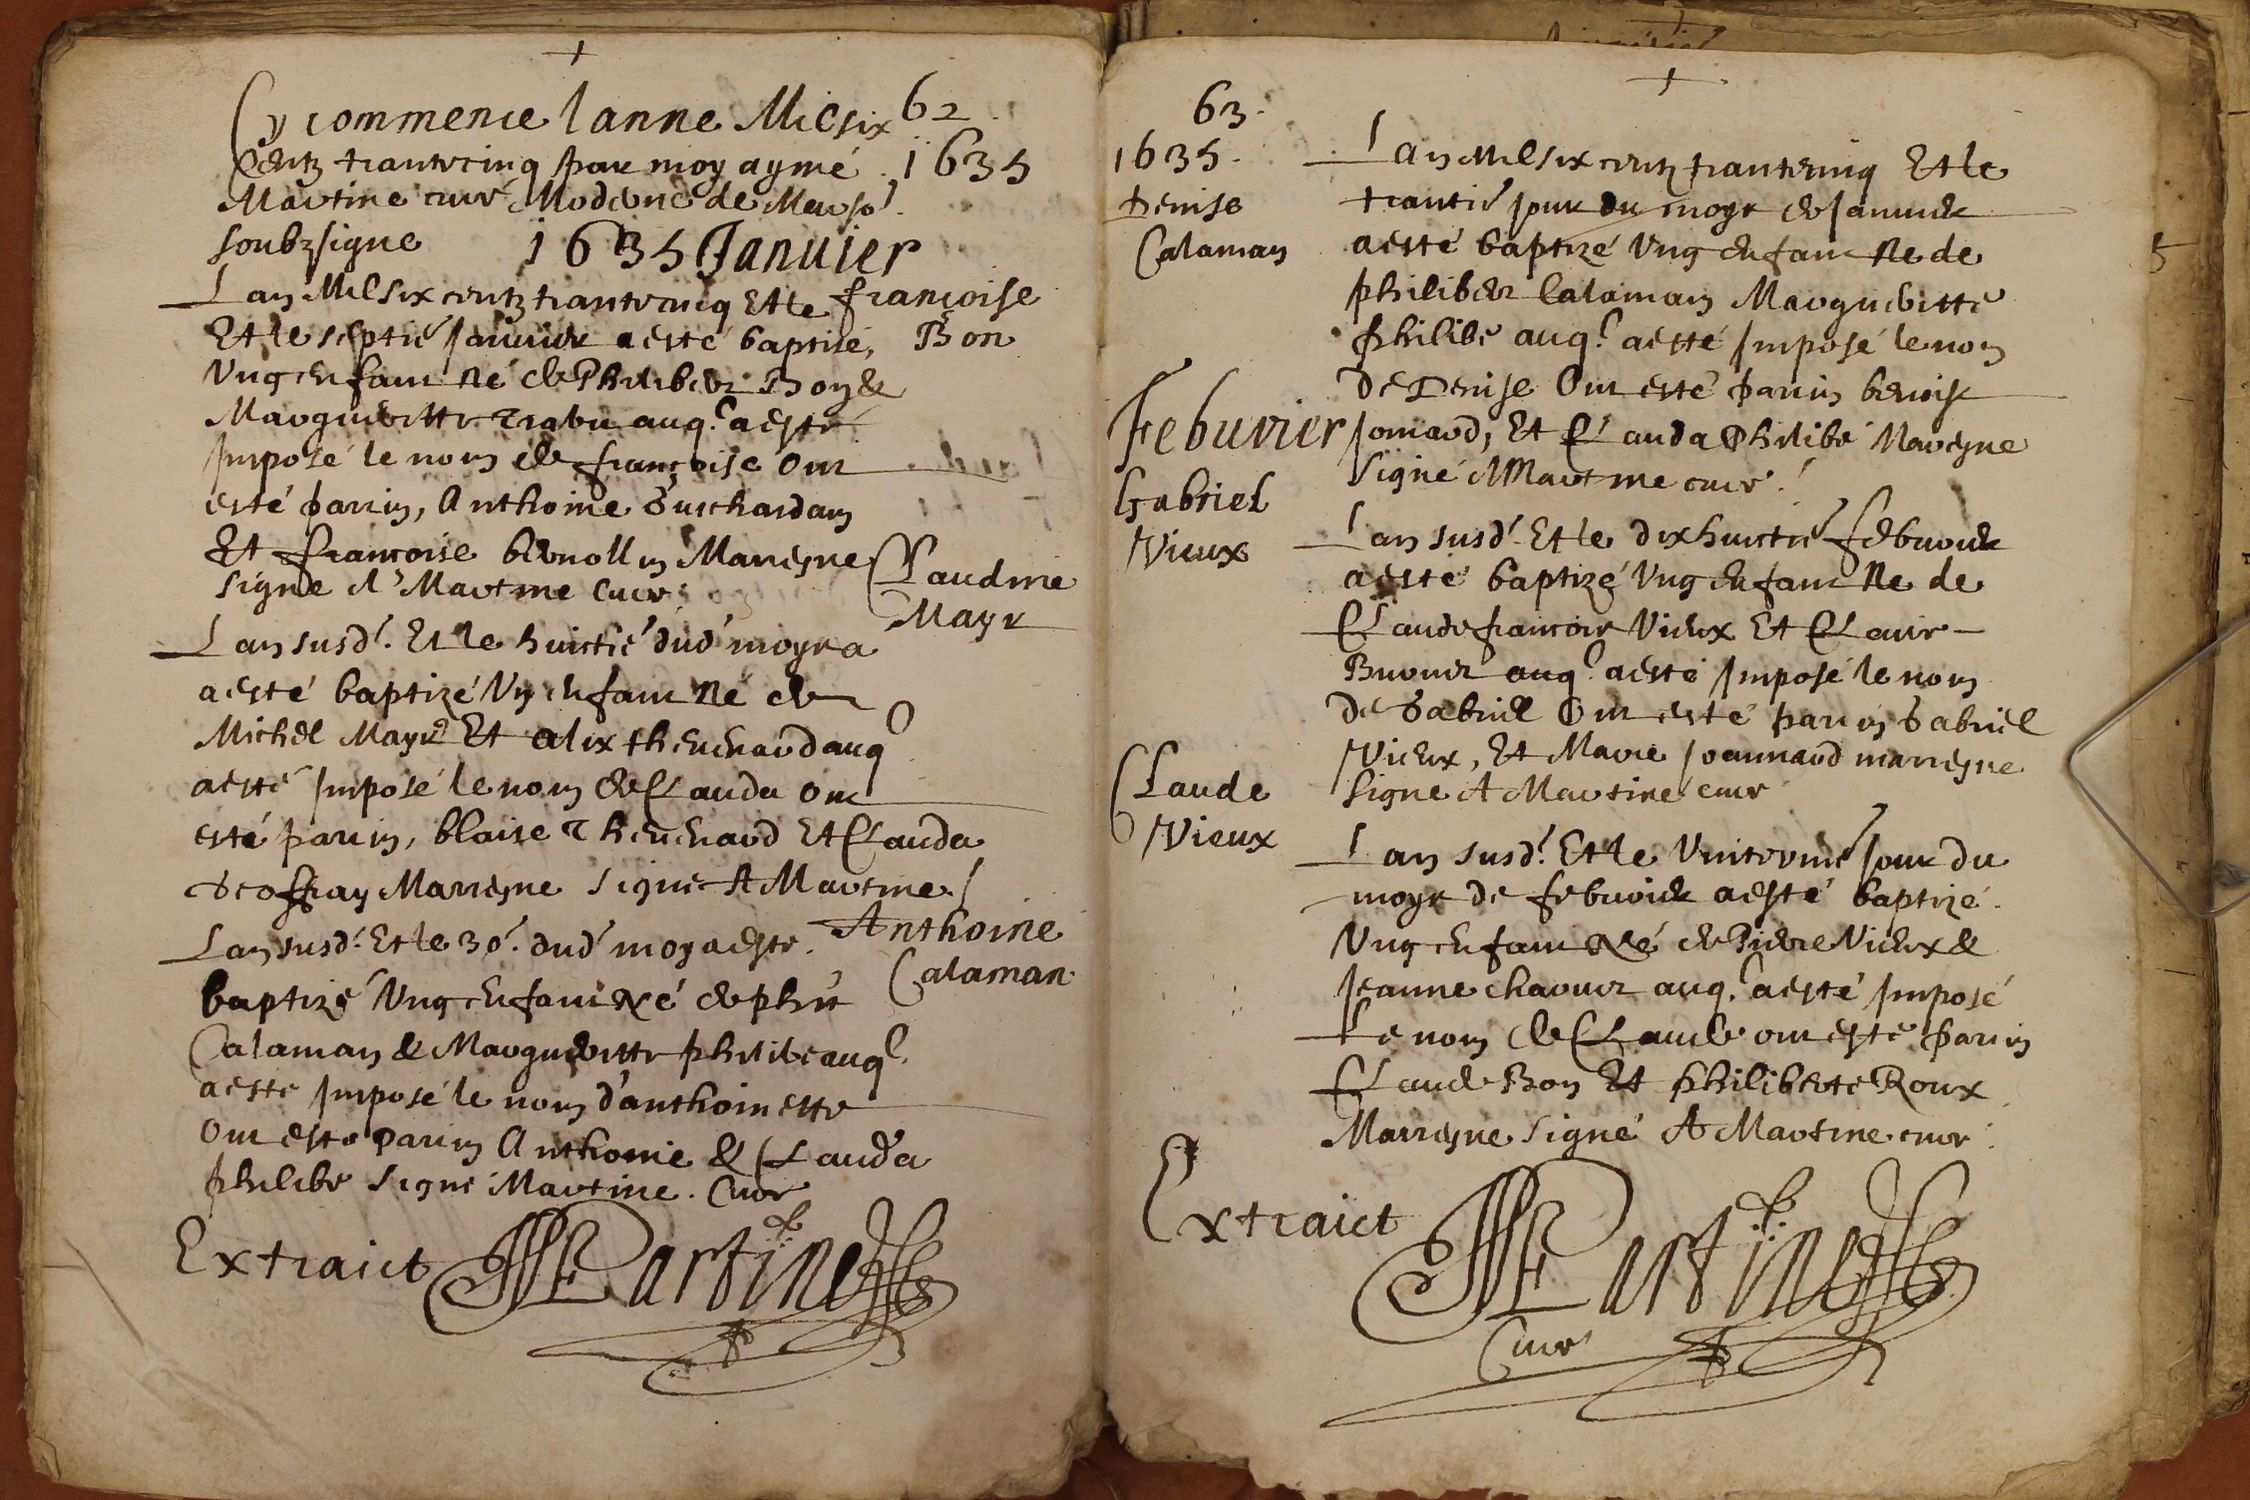 62
Cy commence lanne Mil six
Centz trante cinq par moy aymé
1635
Martine curé Moderne de
soubzsigne
1635 Januier
Lan Mil six centz trante cincq Et le
francoise
Bon
Et le septie Januier a esté baptise,
Vng enfant né de Philiber Bon &
Margueritte auq. a esté
Imposé le nom de francoise Ont
esté parrin, Anthoine Guichardan
Et francoise Marresne
signe A Martine Cure
Claudine
Mayr
Lan susd. Et le huictie dud moys a
a esté baptizé Vn enfant né de
Michel Mayr Et alix theuenard auq
a esté Imposé le nom de Clauda Ont
esté parrin, blaise Theuenard Et Clauda
Geoffray Marresne signe A Martine
Anthoine
Calaman
Lan susd. Et le 30e. dud moy a este
baptizé Vng enfant Né de
Calaman & Margueritte philibe auq
a este Imposé le nom d'anthoinette
Ont este parrin Anthoine & Clauda
philibe signé Martine. Cure
Extraict Martine
63.
1635.
denise
Calaman
Lan Mil six centz trante cinq Et le
trantie Jour du moys de Januier
a esté baptizé Vng enfant Ne de
philiber Calaman Margueritte
philibe auq. a esté Imposé le nom
De Denise Ont esté parrin benoist
Jomard, Et Clauda Philibe Maresne
signé A Martine cure
Febuvrier
Gabriel
Vieux
Lan susd. Et le dixhuictie febvrier
a esté baptizé Vng enfant Ne de
Claude francois Vieux Et
auq. a esté Imposé le nom
De Gabriel Ont esté parrin Gabriel
Vieux, Et Marie Joannard marresne
signe A Martine cure
Claude
Vieux
Lan susd. Et le Jour du
moys de febvrier a esté baptizé.
Vng enfant Né de Pierre Vieux &
Jeanne auq. a esté Imposé
Le nom de Claude ont esté parrin
Claude Bon Et philiberte Roux
Marresne signé A Martine cure
Extraict Martine
Cure
5